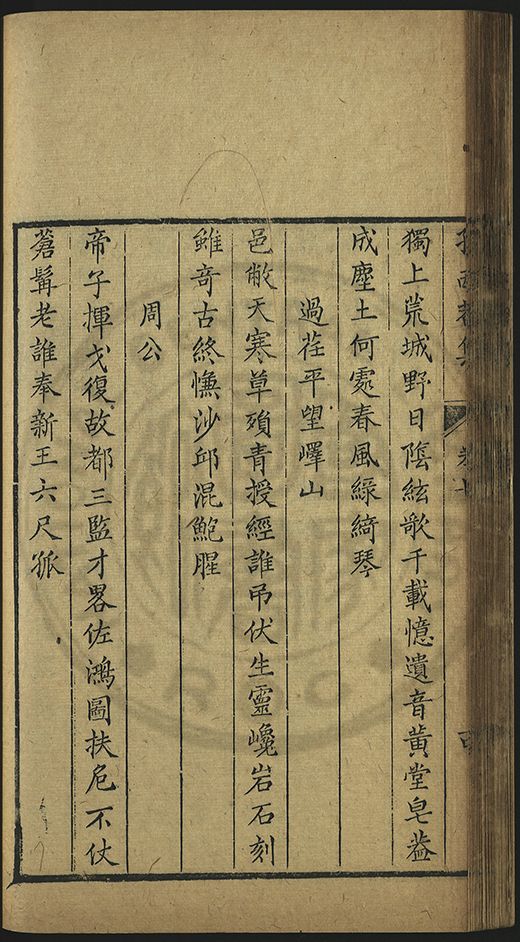 獨上荒城野日陰絃歌千載憶遺音黃堂皂蓋
成塵土何處春風綠綺琴
過茌平望嶧山
邑敝天寒草殞青授經誰吊伏生靈巉岩石刻
雖奇古終憮沙邱混鮑腥
周公
帝子揮戈復故都三監才畧佐鴻圖扶危不仗
蒼髯老誰奉新王六尺孤